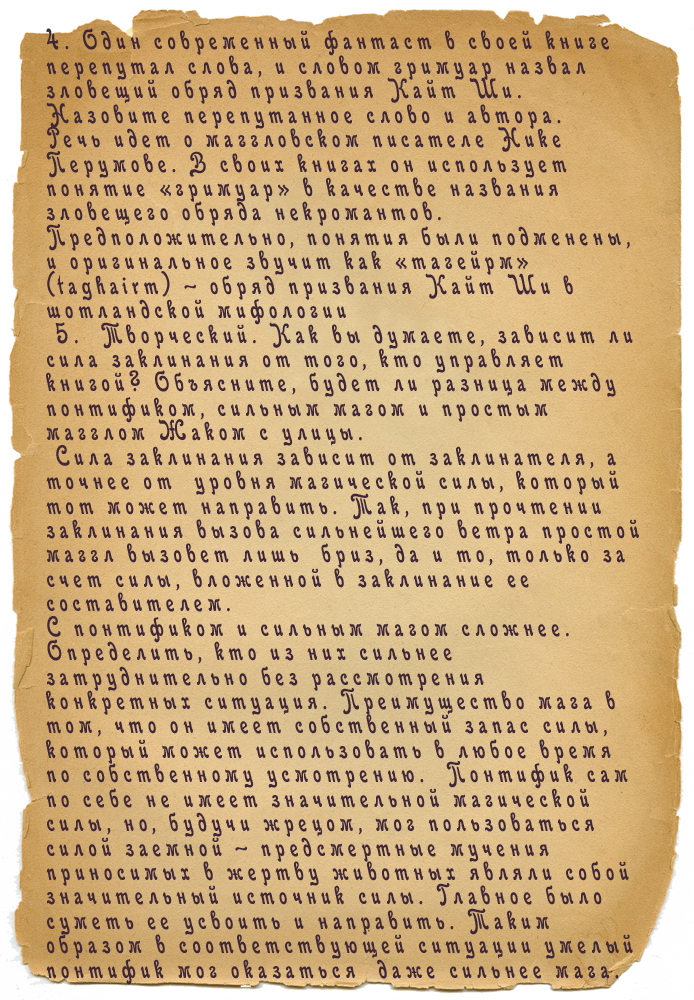 4. Один современный фантаст в своей книге
перепутал слова, и словом гримуар назвал
зловещий обряд призвания Кайт Ши.
Назовите перепутанное слово и автора.
Речь идет о маггловском писателе Нике
Перумове. В своих книгах он использует
понятие «гримуар» в качестве названия
зловещего обряда некромантов.
Предположительно, понятия были подменены,
и оригинальное звучит как «тагейрм»
(taghairm) ~ обряд призвания Кайт Ши в
шотландской мифологии
5. Творческий. Как вы думаете, зависит ли
сила заклинания от того, кто управляет
книгой? Объясните, будет ли разница между
понтификом, сильным магом и простым
магглом Жаком с улицы.
Сила заклинания зависит от заклинателя, а
точнее от уровня магической силы, который
тот может направить. Так, при прочтении
заклинания вызова сильнейшего ветра простой
маггл вызовет лишь бриз, да и то, только за
счет силы, вложенной в заклинание ее
составителем.
С понтификом и сильным магом сложнее.
Определить, кто из них сильнее
затруднительно без рассмотрения
конкретных ситуация. Преимущество мага в
том, что он имеет собственный запас силы,
который может использовать в любое время
по собственному усмотрению. Понтифик сам
по себе не имеет значительной магической
силы, но, будучи жрецом, мог пользоваться
силой заемной ~ предсмертные мучения
приносимых в жертву животных являли собой
значительный источник силы. Главное было
суметь ее усвоить и направить. Таким
образом в соответствующей ситуации умелый
понтифик мог оказаться даже сильнее мага.